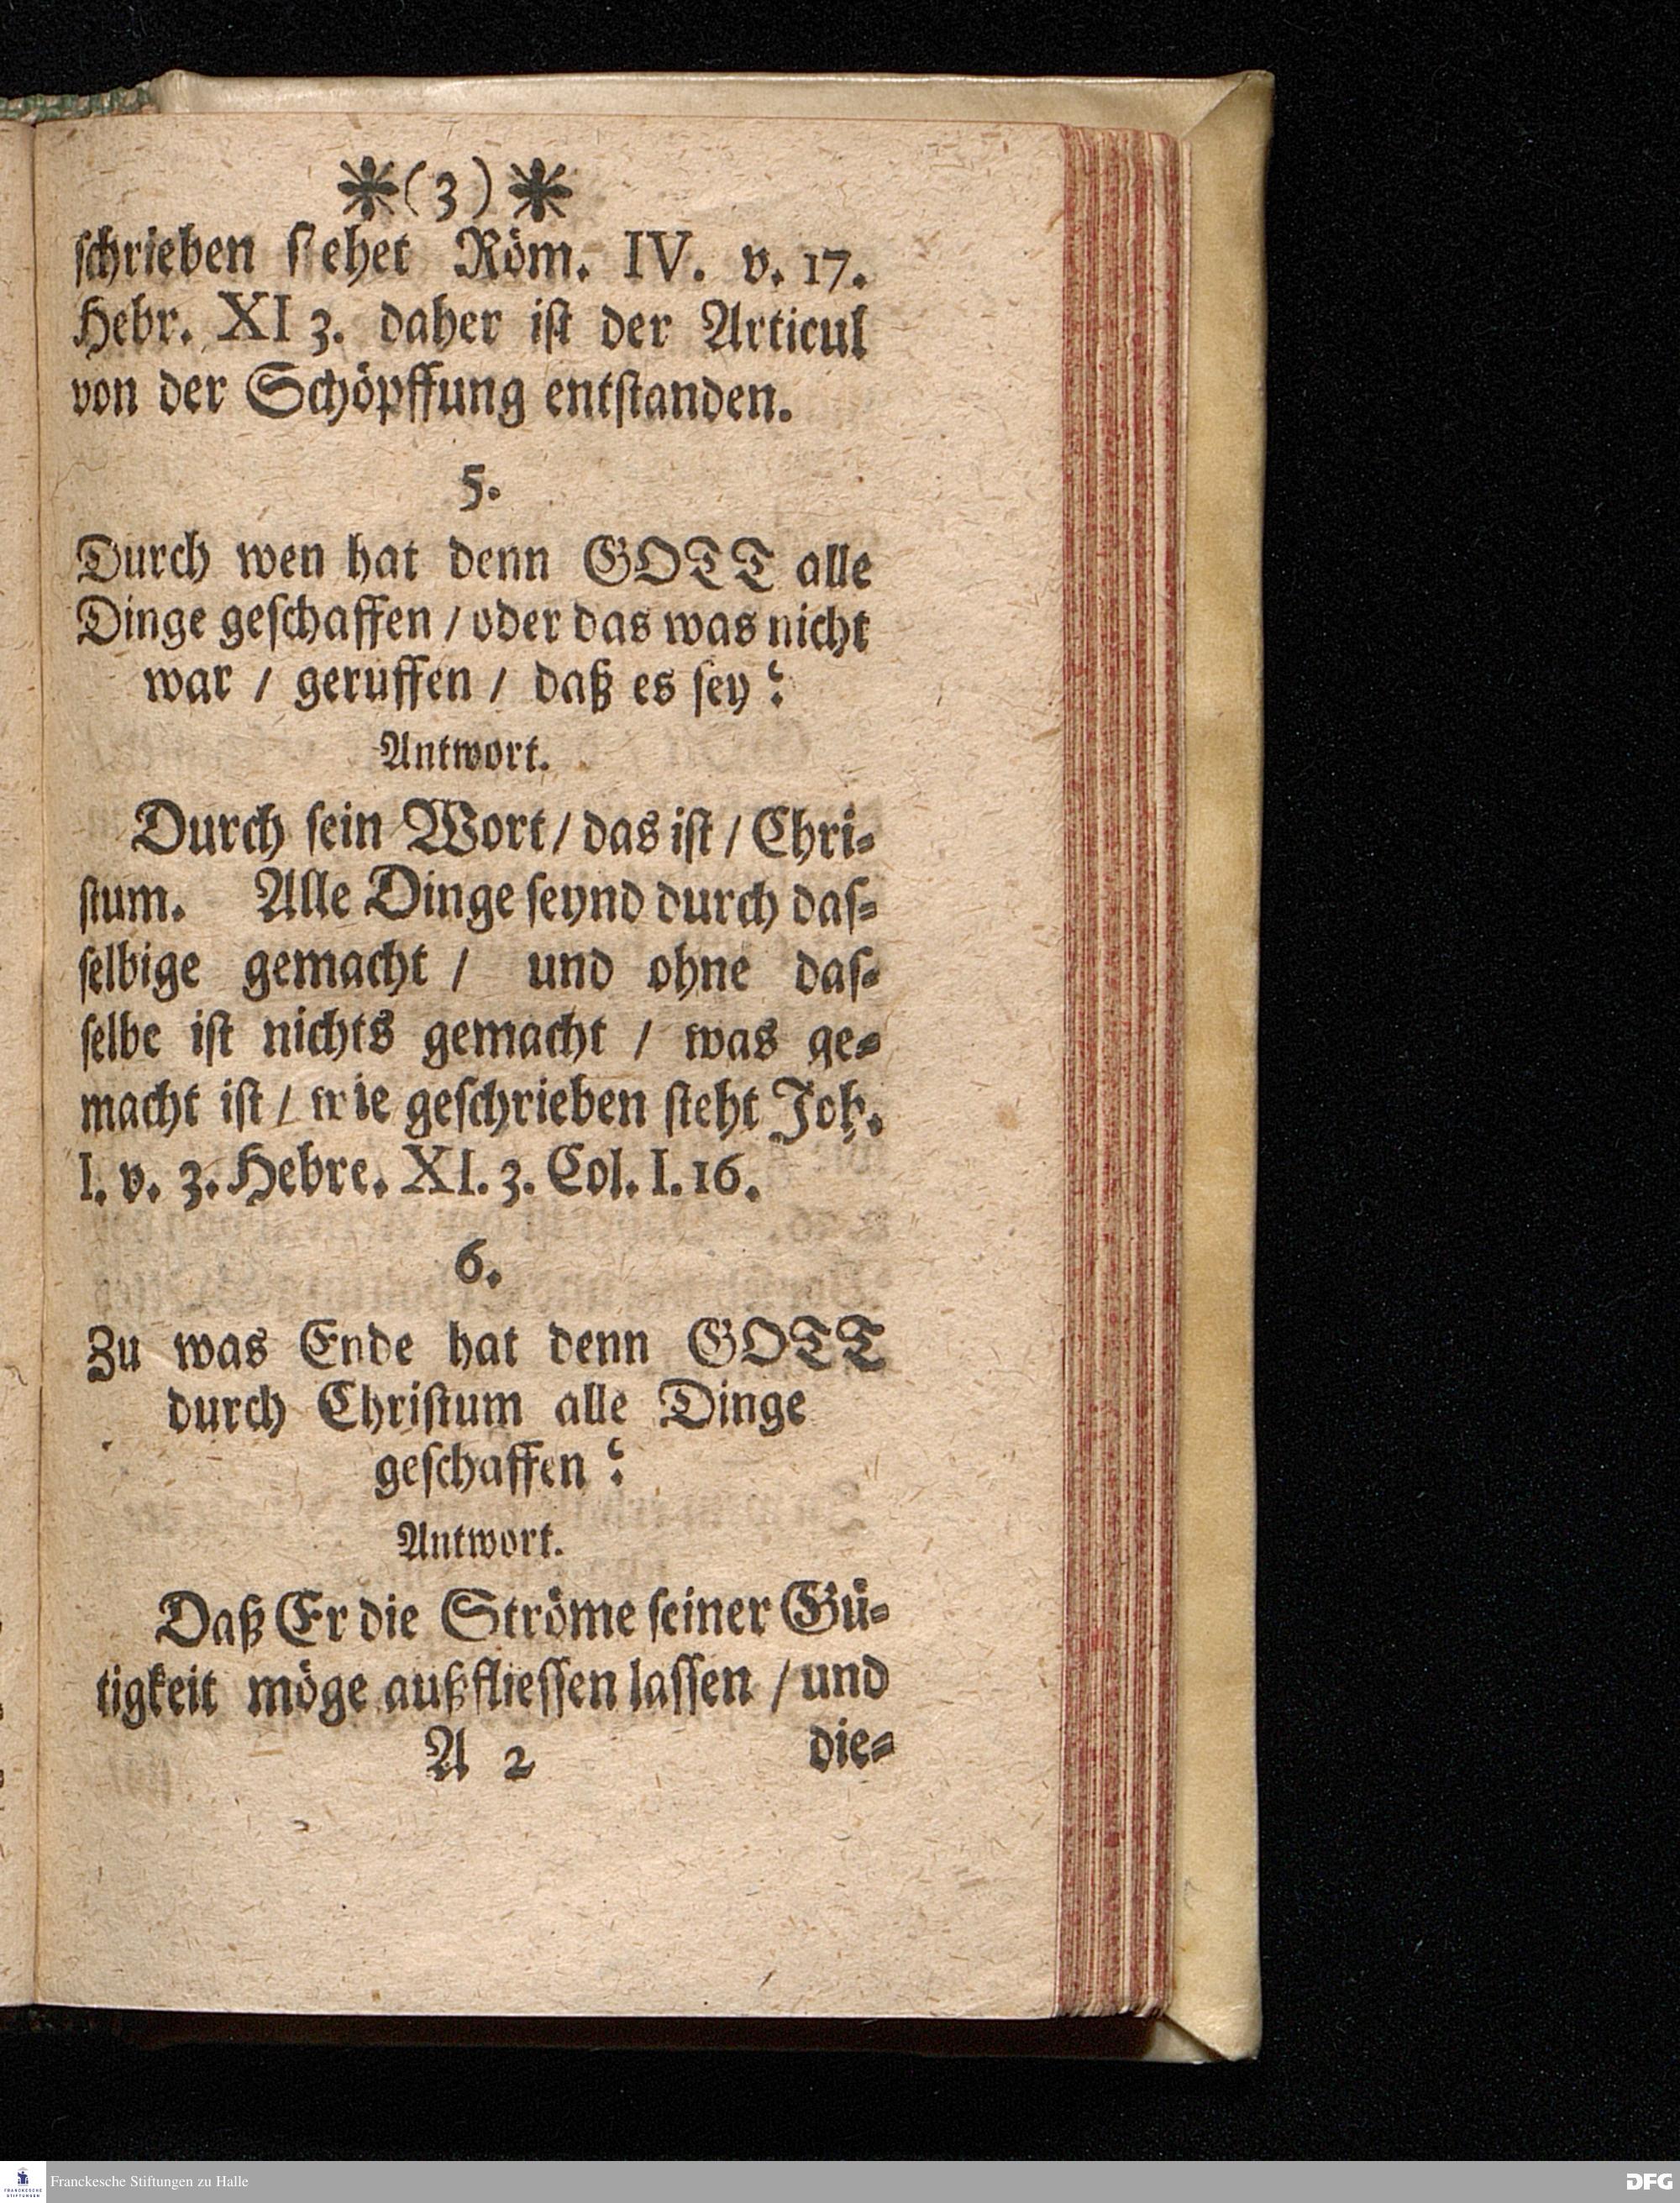 *(3)*
schrieben stehet Röm. IV. v. 17.
Hebr. XI 3. daher ist der Articul
von der Schöpffung entstanden.
5.
Durch wen hat denn GOTT alle
Dinge geschaffen / oder das was nicht
war / geruffen / daß es sey?
Antwort.
Durch sein Wort / das ist / Chri-
stum. Alle Dinge seynd durch das-
selbige gemacht / und ohne das-
selbe ist nichts gemacht / was ge-
macht ist / wie geschrieben steht Joh.
I. v. 3. Hebre. XI. 3. Col. I. 16.
6.
Zu was Ende hat denn GOTT
durch Christum alle Dinge
geschaffen?
Antwort.
Daß Er die Ströme seiner Gü-
tigkeit möge außfliessen lassen / und
A 2 die-
Franckesche Stiftungen zu Halle
DFG